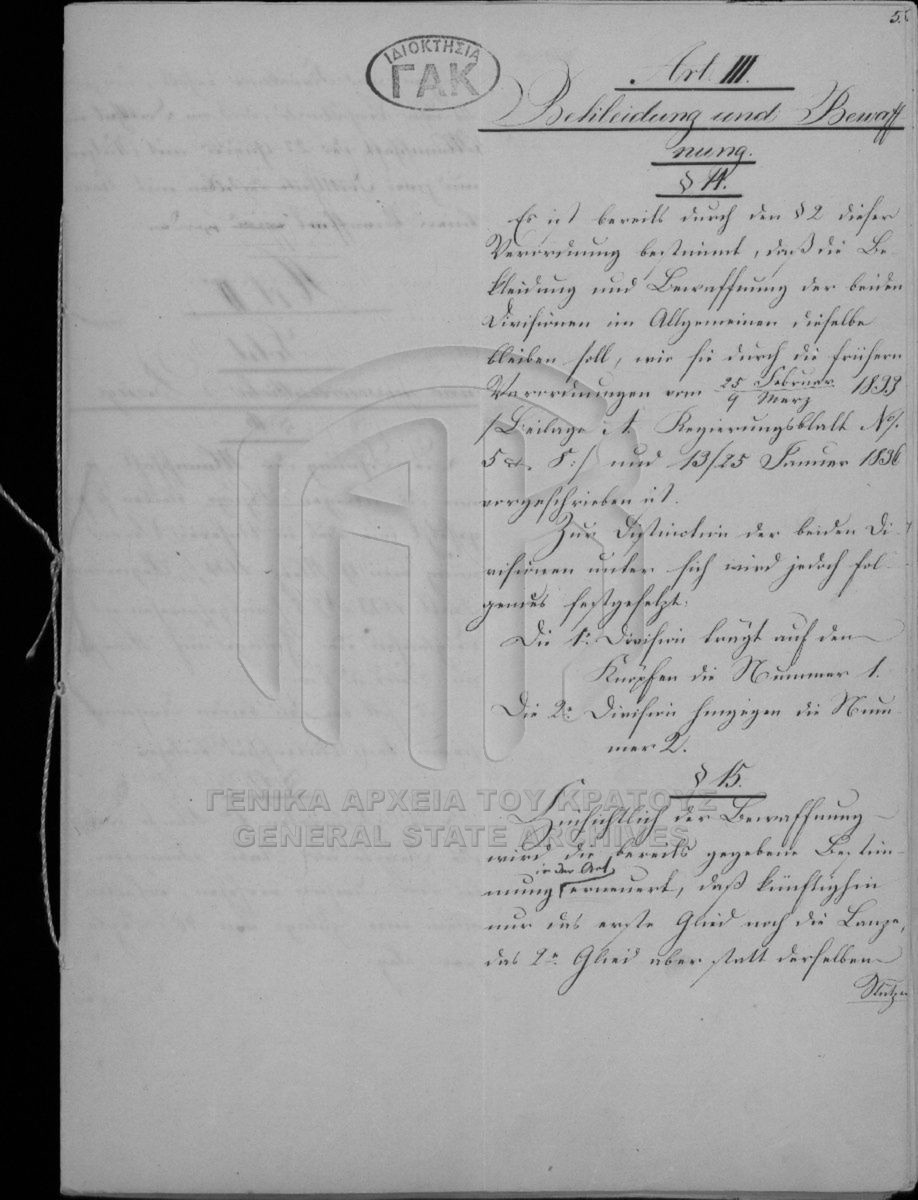 5.
ΙΔΙΟΚΤΗΣΙΑ
ΓΑΚ
Art. III.
Bekleidung und Bewaff
nung.
§ 14.
Es ist bereits durch den § 2 dieser
Verordnung bestimmt, daß die Be-
kleidung und Bewaffnung der beiden
Divisionen im Allgemeinen dieselbe
bleiben soll, wie sie durch die frühern
Verordnungen vom 25 Februar / 9 Merz 1833
/: Beilage Regierungsblatt No.
5 & 8 :/ und 13/25 Januar 1836
vorgeschrieben ist.
Zur Distinction der beiden Di-
visionen unter sich wird jedoch fol-
gendes festgesetzt:
Die 1e. Division trägt auf den
Knöpfen die Nummer 1.
Die 2e. Division hingegen die Num-
mer 2.
§ 15.
ΓΕΝΙΚΑ ΑΡΧΕΙΑ ΤΟΥ ΚΡΑΤΟΥΣ
GENERAL STATE ARCHIVES
Hinsichtlich der Bewaffnung
wird die bereits gegebene Bestim-
in der Art
mung erneuert, daß künftighin
nur das erste Glied noch die Lanze,
das 2e. Glied aber statt derselben
Stutzen